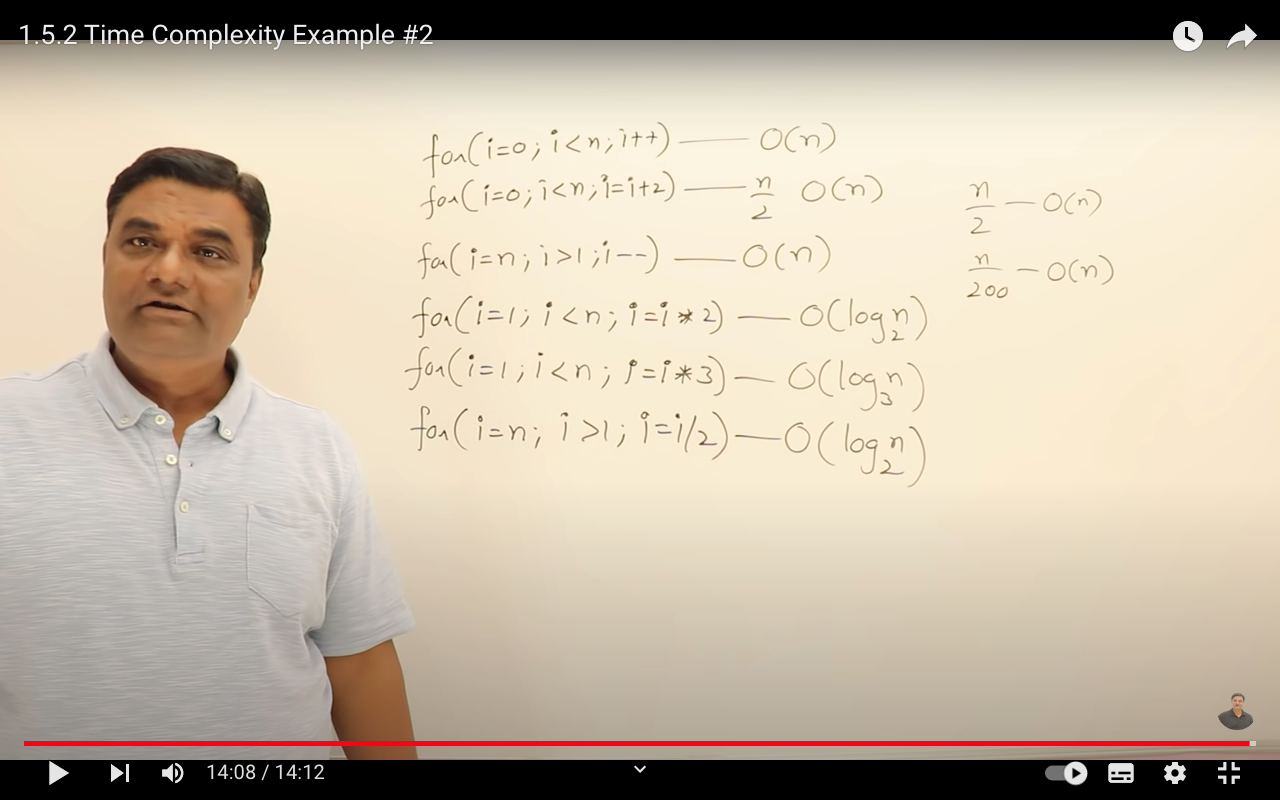 1.5.2 Time Complexity Example #2
for(i=0; i<n; i++) — O(n)
for(i=0; i<n; i=i+2) — n/2 O(n)
n/2 — O(n)
for(i=n; i>1; i--) — O(n)
n/200 — O(n)
for(i=1; i<n; i=i*2) — O(log₂n)
for(i=1; i<n; i=i*3) — O(log₃n)
for(i=n; i>1; i=i/2) — O(log₂n)
14:08 / 14:12